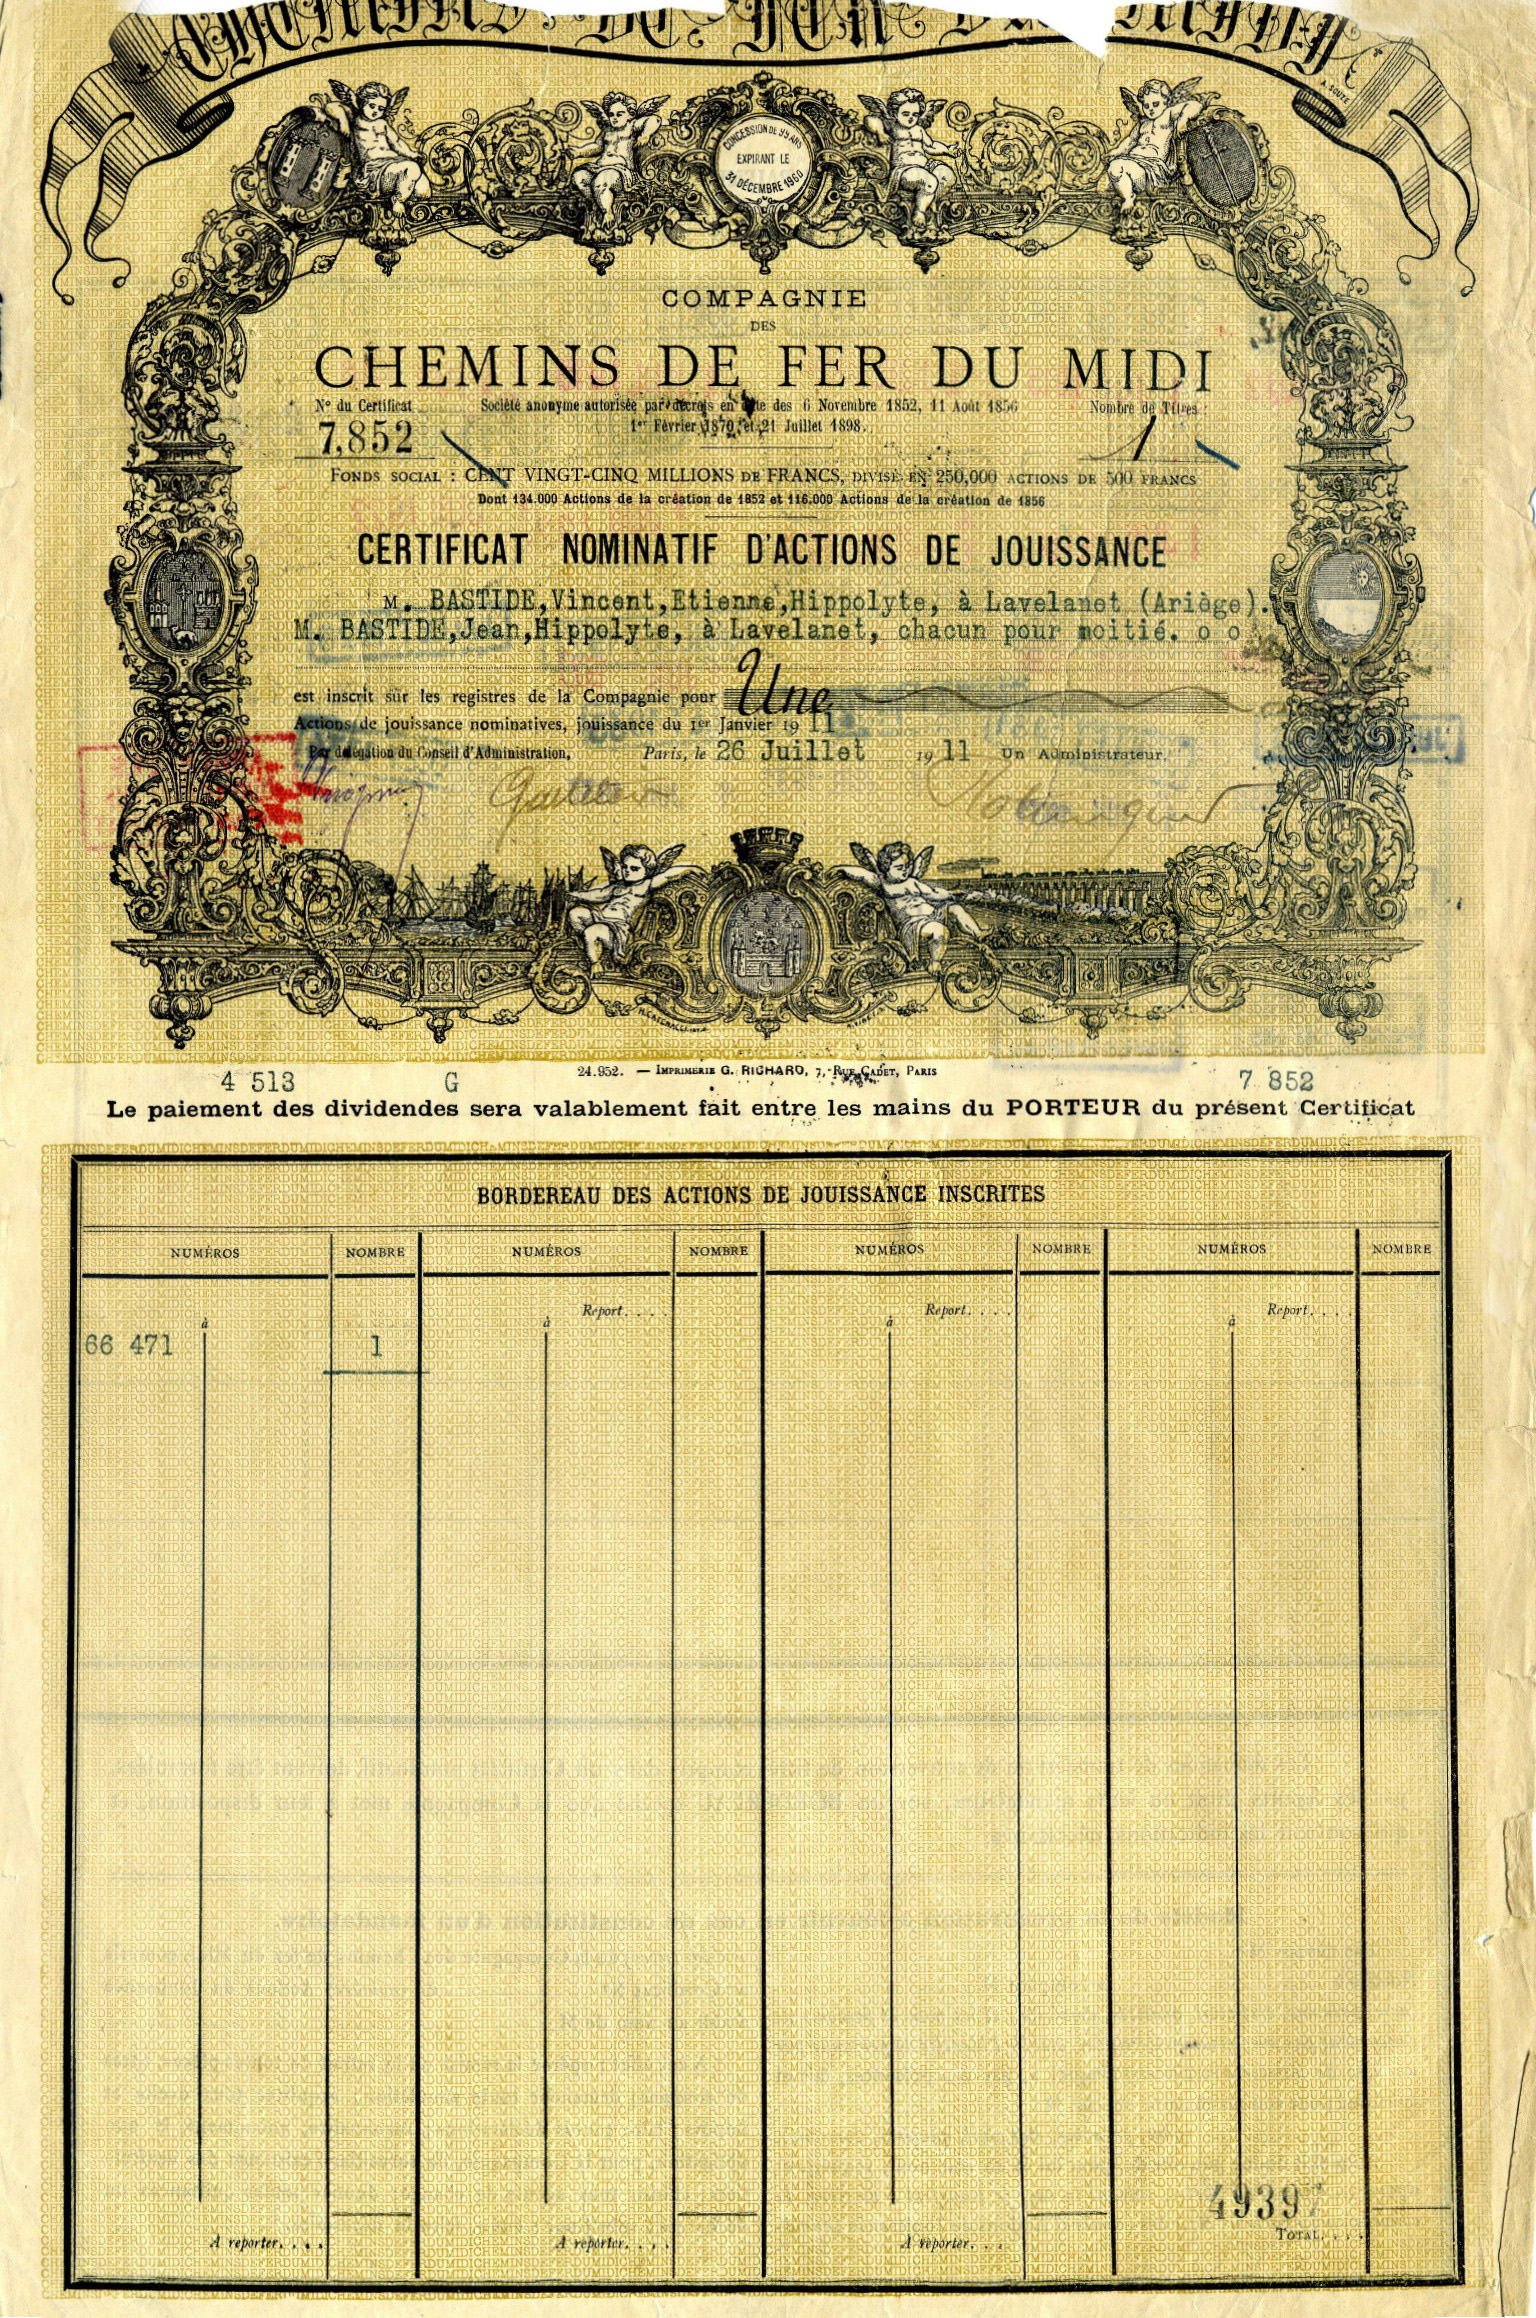 CHEMINS DE FER DU MIDI
A. SOUZE
CONCESSION DE 99 ANS
EXPIRANT LE
31 DÉCEMBRE 1960
COMPAGNIE
DES
CHEMINS DE FER DU MIDI
No du Certificat Société anonyme autorisée par décrets en date des 6 Novembre 1852, 11 Août 1856 Nombre de Titres :
7,852 1er Février 1870 et 21 Juillet 1898. 1
FONDS SOCIAL : CENT VINGT-CINQ MILLIONS DE FRANCS, DIVISÉ EN 250,000 ACTIONS DE 500 FRANCS
Dont 134.000 Actions de la création de 1852 et 116.000 Actions de la création de 1856
CERTIFICAT NOMINATIF D'ACTIONS DE JOUISSANCE
M. BASTIDE,Vincent,Etienne,Hippolyte, à Lavelanet (Ariège).
M. BASTIDE,Jean,Hippolyte, à Lavelanet, chacun pour moitié. o o
est inscrit sur les registres de la Compagnie pour Une
Actions de jouissance nominatives, jouissance du 1er Janvier 19 11
Par délégation du Conseil d'Administration, Paris, le 26 Juillet 19 11 Un Administrateur,
24.952. — IMPRIMERIE G. RICHARD, 7, RUE CADET, PARIS
4 513 G 7 852
Le paiement des dividendes sera valablement fait entre les mains du PORTEUR du présent Certificat
BORDEREAU DES ACTIONS DE JOUISSANCE INSCRITES
NUMÉROS NOMBRE NUMÉROS NOMBRE NUMÉROS NOMBRE NUMÉROS NOMBRE
Report. . . . Report. . . . Report. . . .
à à à à
66 471 1
49397
TOTAL. . . .
A reporter. . . . A reporter. . . . A reporter. . . .